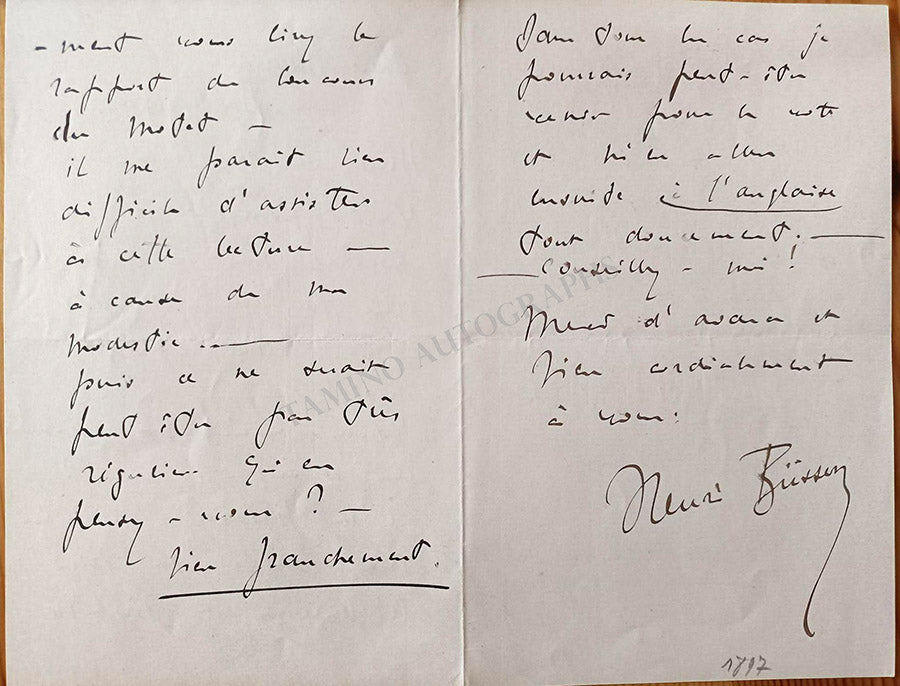 -ment vous lirez le
rapport du Concours
du Motet —
il me parait bien
difficile d'assister
à cette lecture —
à cause de ma
modestie. —
puis ce ne serait
peut être pas très
régulier. Qu'en
pensez-vous ? —
bien franchement.
Dans tous les cas je
pourrais peut-être
venir pour le vote
et m'en aller
ensuite à l'anglaise
tout doucement. —
— Conseillez-moi !
Merci d'avance et
bien cordialement
à vous.
Henri Büsser
1897
TAMINO AUTOGRAPHS